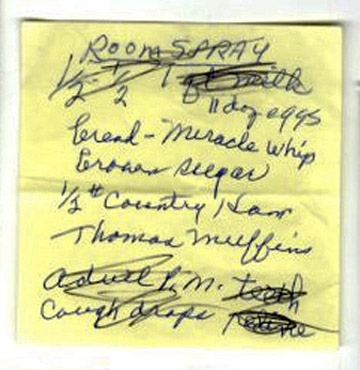 ROOM SPRAY
1/2 - 1/2 1 qt milk
11 doz eggs
bread - Miracle Whip
Brown sugar
1/2 # Country Ham
Thomas Muffins
adult P.M. teeth
Cough drops